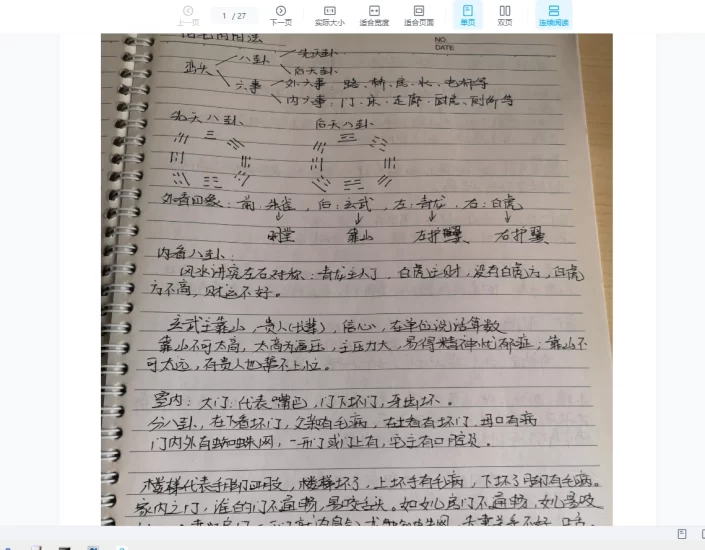 上一页 1 / 27 下一页 实际大小 适合宽度 适合页面 单页 双页 连续阅读
NO.
DATE
峦头 八卦 先天卦
后天卦
六事 外六事：路、桥、房、水、电杆等
内六事：门、床、走廊、厨房、厕所等
先天八卦 后天八卦
外看四象：前：朱雀，后：玄武，左：青龙，右：白虎
明堂 靠山 左护翼 右护翼
内看八卦：
风水讲究左右对称：青龙主人丁，白虎主财，没有白虎方，白虎
方不高，财运不好。
玄武主靠山，贵人(长辈)，信心，在单位说话算数
靠山不可太高，太高为逼压，主压力大，易得精神忧郁症；靠山不
可太远，有贵人也帮不上忙。
室内：大门：代表嘴巴，门下坏门，牙齿坏。
分八卦，在下看坏门，父亲有毛病，在上看有坏门，母口有病
门内外有蜘蛛网，一开门或门上有，宅主有口腔炎。
楼梯代表手脚四肢，楼梯坏了，上坏手有毛病，下坏了脚有毛病。
家内之门，谁的门不通畅，易咬舌头。如女儿房门不通畅，女儿易咬